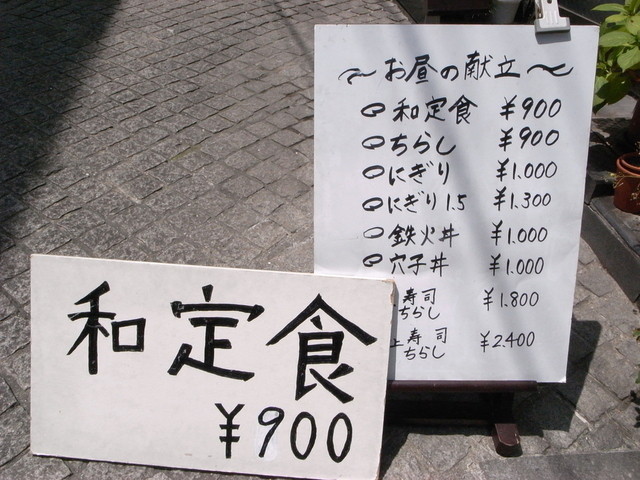 お昼の献立
和定食 ¥900
ちらし ¥900
にぎり ¥1.000
にぎり1.5 ¥1.300
鉄火丼 ¥1.000
穴子丼 ¥1.000
寿司 ¥1.800
ちらし
上寿司 ¥2.400
ちらし
和定食
¥900